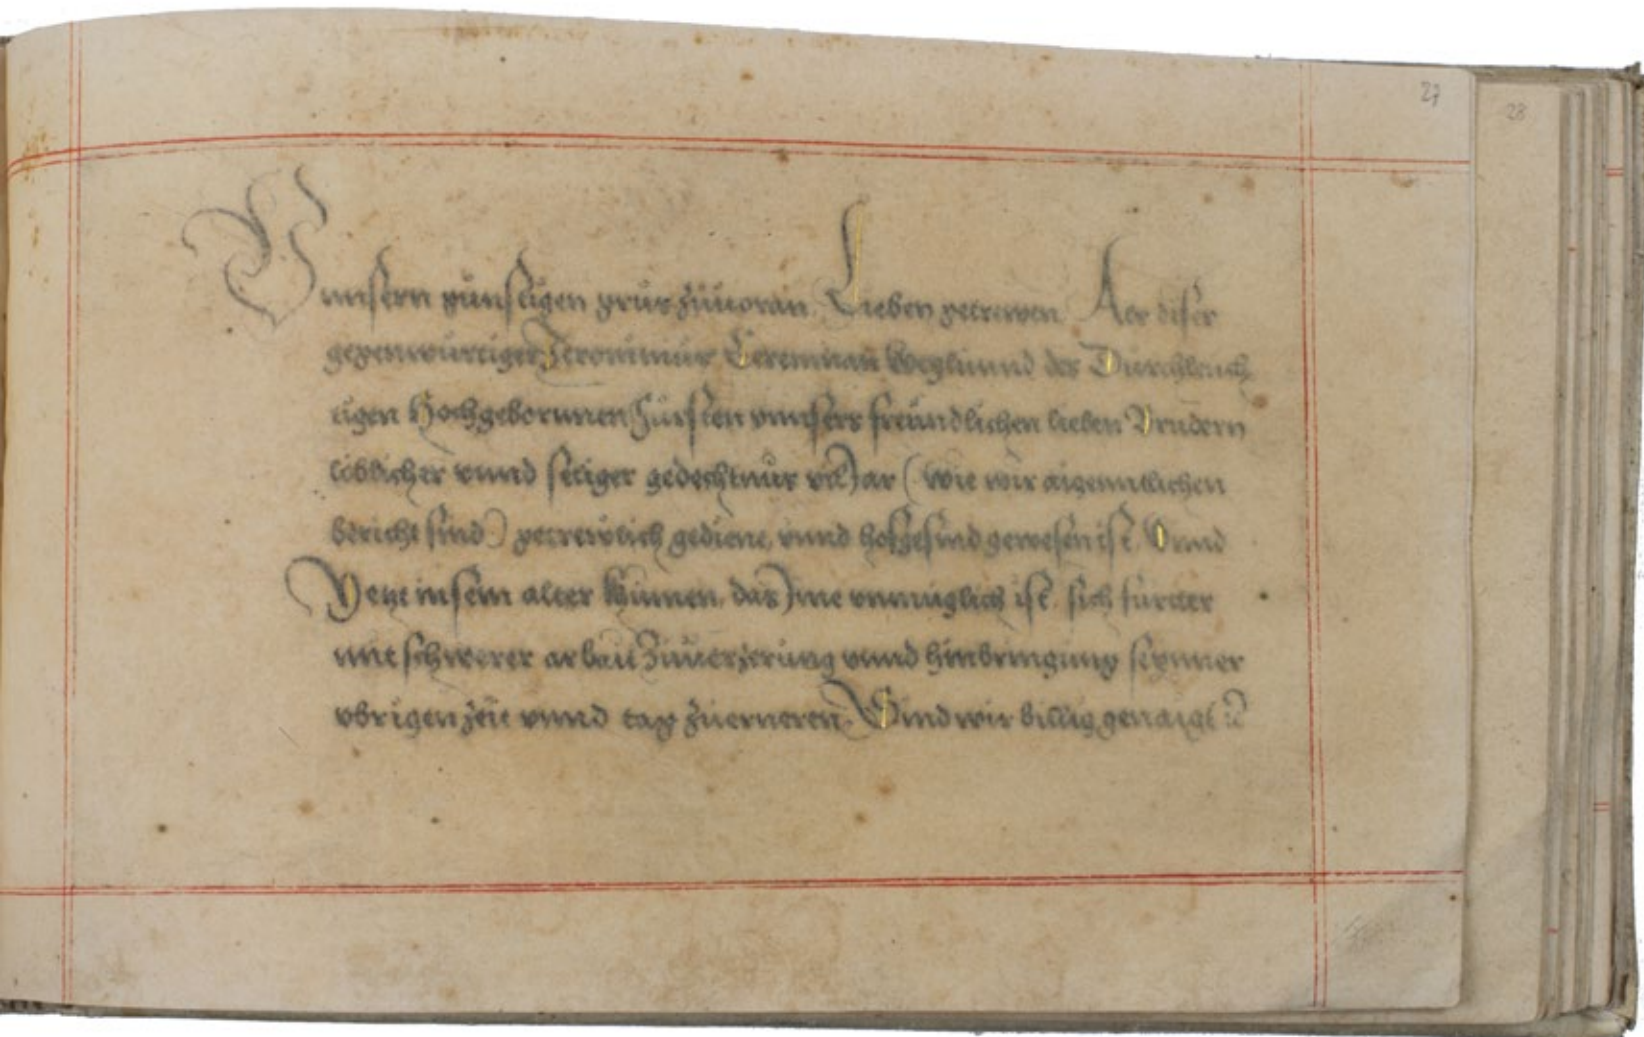 27
28
Vnnsern günstigen grus zůuoran Lieben getrewen Als diser
gegenwürtiger Jeronimus weylunnd des Durchleuch
tigen Hochgebornnen Fürsten vnnsers freündlichen lieben Brudern
löblicher vnnd seliger gedechtnůs vil Jar ( wie wir aigenntlichen
bericht sind ) getrewlich gedient, vnnd hofgesind gewesen ist, Vnnd
Yetzt in sein alter kumen, das Jme vnmuglich ist, sich fürtter
mit schwerer arbait zůuerzerung vnnd hinbringung seynner
vbrigen zeit vnnd tag zůerneren, Sind wir billig genaigt ꝛc